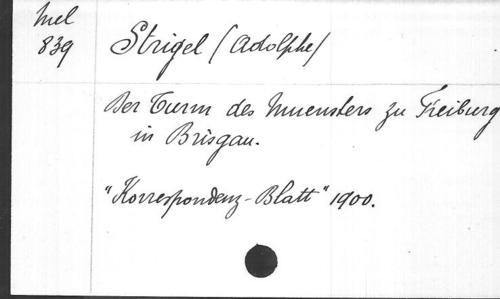 Mel
839
Strigel (Adolphe)
Der Turm des Muensters zu Freiburg
in Brisgau.
"Korrespondenz-Blatt" 1900.